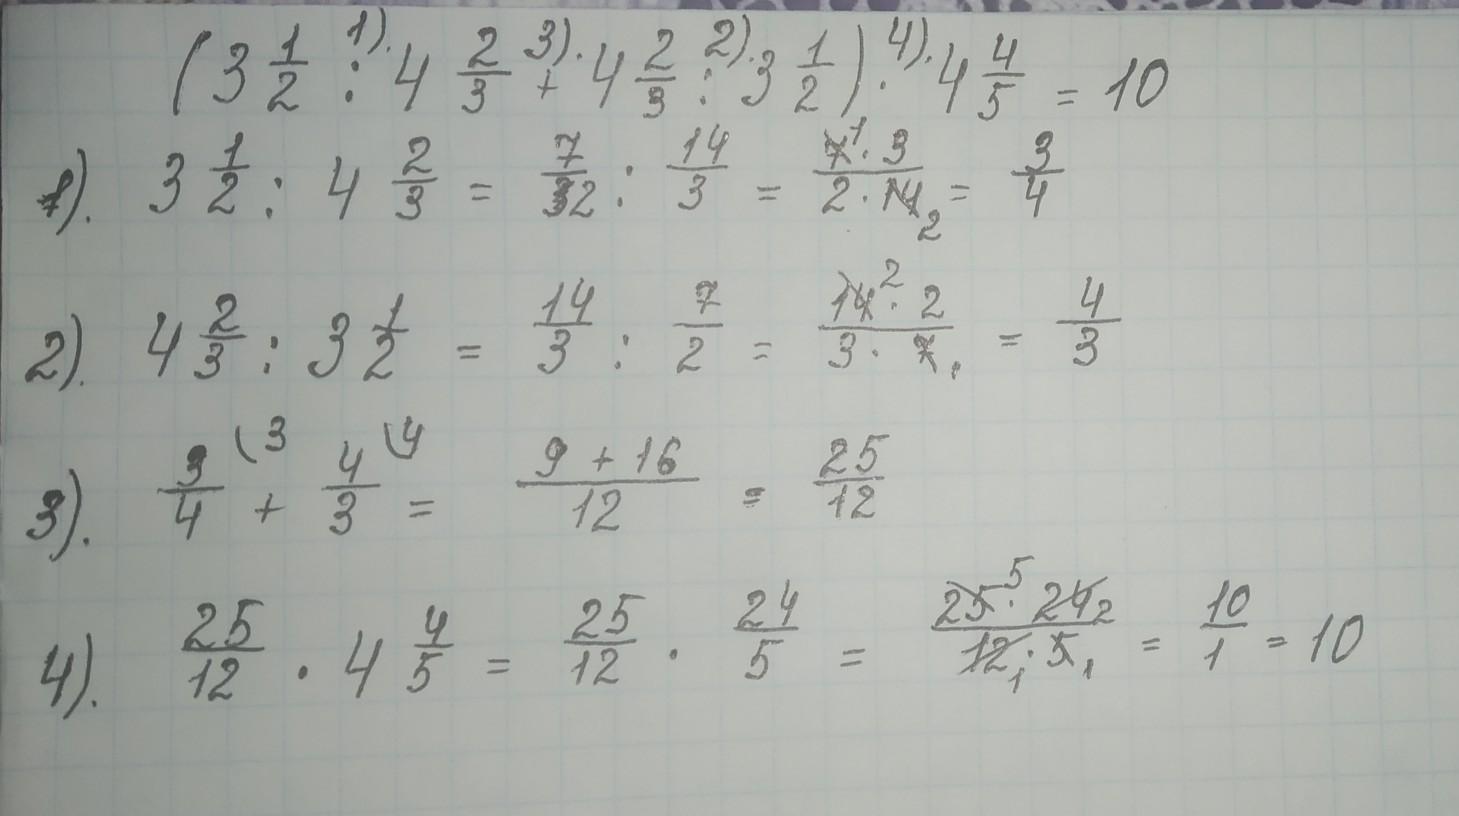 (3 1/2 : 4 2/3 + 4 2/3 : 3 1/2) · 4 4/5 = 10
1). 3). 2). 4).
1). 3 1/2 : 4 2/3 = 7/2 : 14/3 = 7¹·3/2·14₂ = 3/4
2). 4 2/3 : 3 1/2 = 14/3 : 7/2 = 14²·2/3·7₁ = 4/3
3). 3/4 (3 + 4/3 (4 = 9+16/12 = 25/12
4). 25/12 · 4 4/5 = 25/12 · 24/5 = 25⁵·24₂/12₁·5₁ = 10/1 = 10